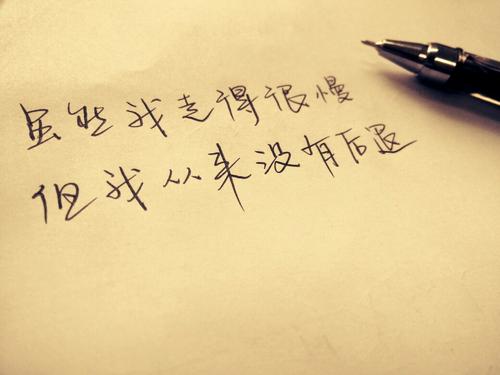 虽然我走得很慢
但我从来没有后退